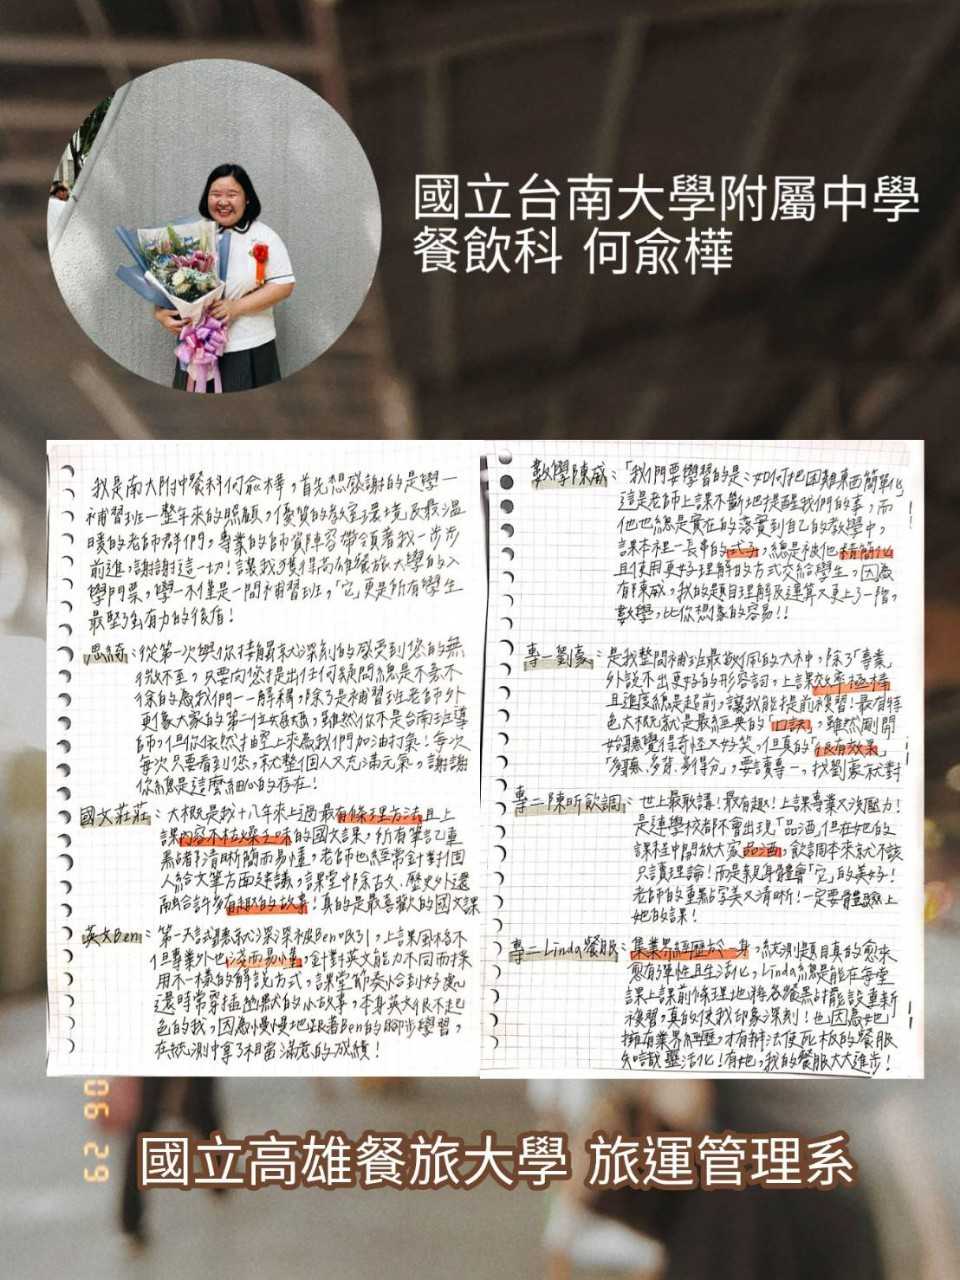 國立台南大學附屬中學
餐飲科 何俞樺
我是南大附中餐科何俞樺，首先想感謝的是學一
補習班一整年來的照顧，優質的教室環境及最溫
暖的老師群們，專業的師資陣容帶領著我一步步
前進，謝謝這一切！讓我獲得高雄餐旅大學的入
學門票，學一不僅是一間補習班，「它」更是所有學生
最堅強有力的後盾！
思綺：從第一次與你接觸就深刻的感受到您的無
微不至，只要向您提出任何疑問總是不厭不
徐的為我們一一解釋，除了是補習班老師外
更像大家的第二位媽媽，雖然你不是台南班導
師，但你依然抽空上來為我們加油打氣！每次
每次只要看到您，就整個人又充滿元氣，謝謝
你總是這麼細心的存在！
國文莊莊：大概是我十八年來上過最有條理方法且上
課內容不枯燥乏味的國文課，所有筆記重
點都清晰簡而易懂，老師也經常針對個
人給文筆方面建議，課堂中除古文、歷史外還
融合許多有趣的故事！真的是最喜歡的國文課
英文Ben：第一天試聽就深深被Ben吸引，上課風格不
但專業外也淺而易懂，針對英文能力不同而採
用不一樣的解說方式，課堂節奏恰到好處
還時常穿插幽默的小故事，本身英文很不起
色的我，因為慢慢地跟著Ben的腳步學習，
在統測中拿了相當滿意的成績！
數學陳威：「我們要學習的是：如何把困難東西簡單化」
這是老師上課不斷地提醒我們的事，而
他也總是實在的落實到自己的教學中，
課本裡一長串的式子，總是被他精簡化
且使用更好理解的方式交給學生，因為
有陳威，我的題目理解及運算又更上了一階，
數學，比你想像的容易！！
專一劉豪：是我整間補班最敬佩的大神，除了「專業」
外說不出更好的形容詞，上課效率極棒
且進度總是超前，讓我能提前複習！最有特
色大概就是最經典的「口訣」，雖然剛開
始聽覺得奇怪又好笑，但真的「很有效果」
「多聽、多背、多得分」，要讀專一，找劉豪就對
專二陳昕飲調：世上最敢講！最有趣！上課專業又沒壓力！
是連學校都不會出現「品酒」但在她的
課程中開放大家品酒，飲調本來就不該
只讀理論！而是親身體會「它」的美好！
老師的重點寫美又清晰！一定要體驗上
她的課！
專二Linda餐服：集業界經歷於一身，統測題目真的愈來
愈有彈性且生活化，Linda總是能在每堂
課上課前條理地將各餐點擺設重新
複習，真的使我印象深刻！也因為她
擁有業界經歷，才有辦法使死板的餐服
知識靈活化！有她，我的餐服大大進步！
62 90
國立高雄餐旅大學 旅運管理系